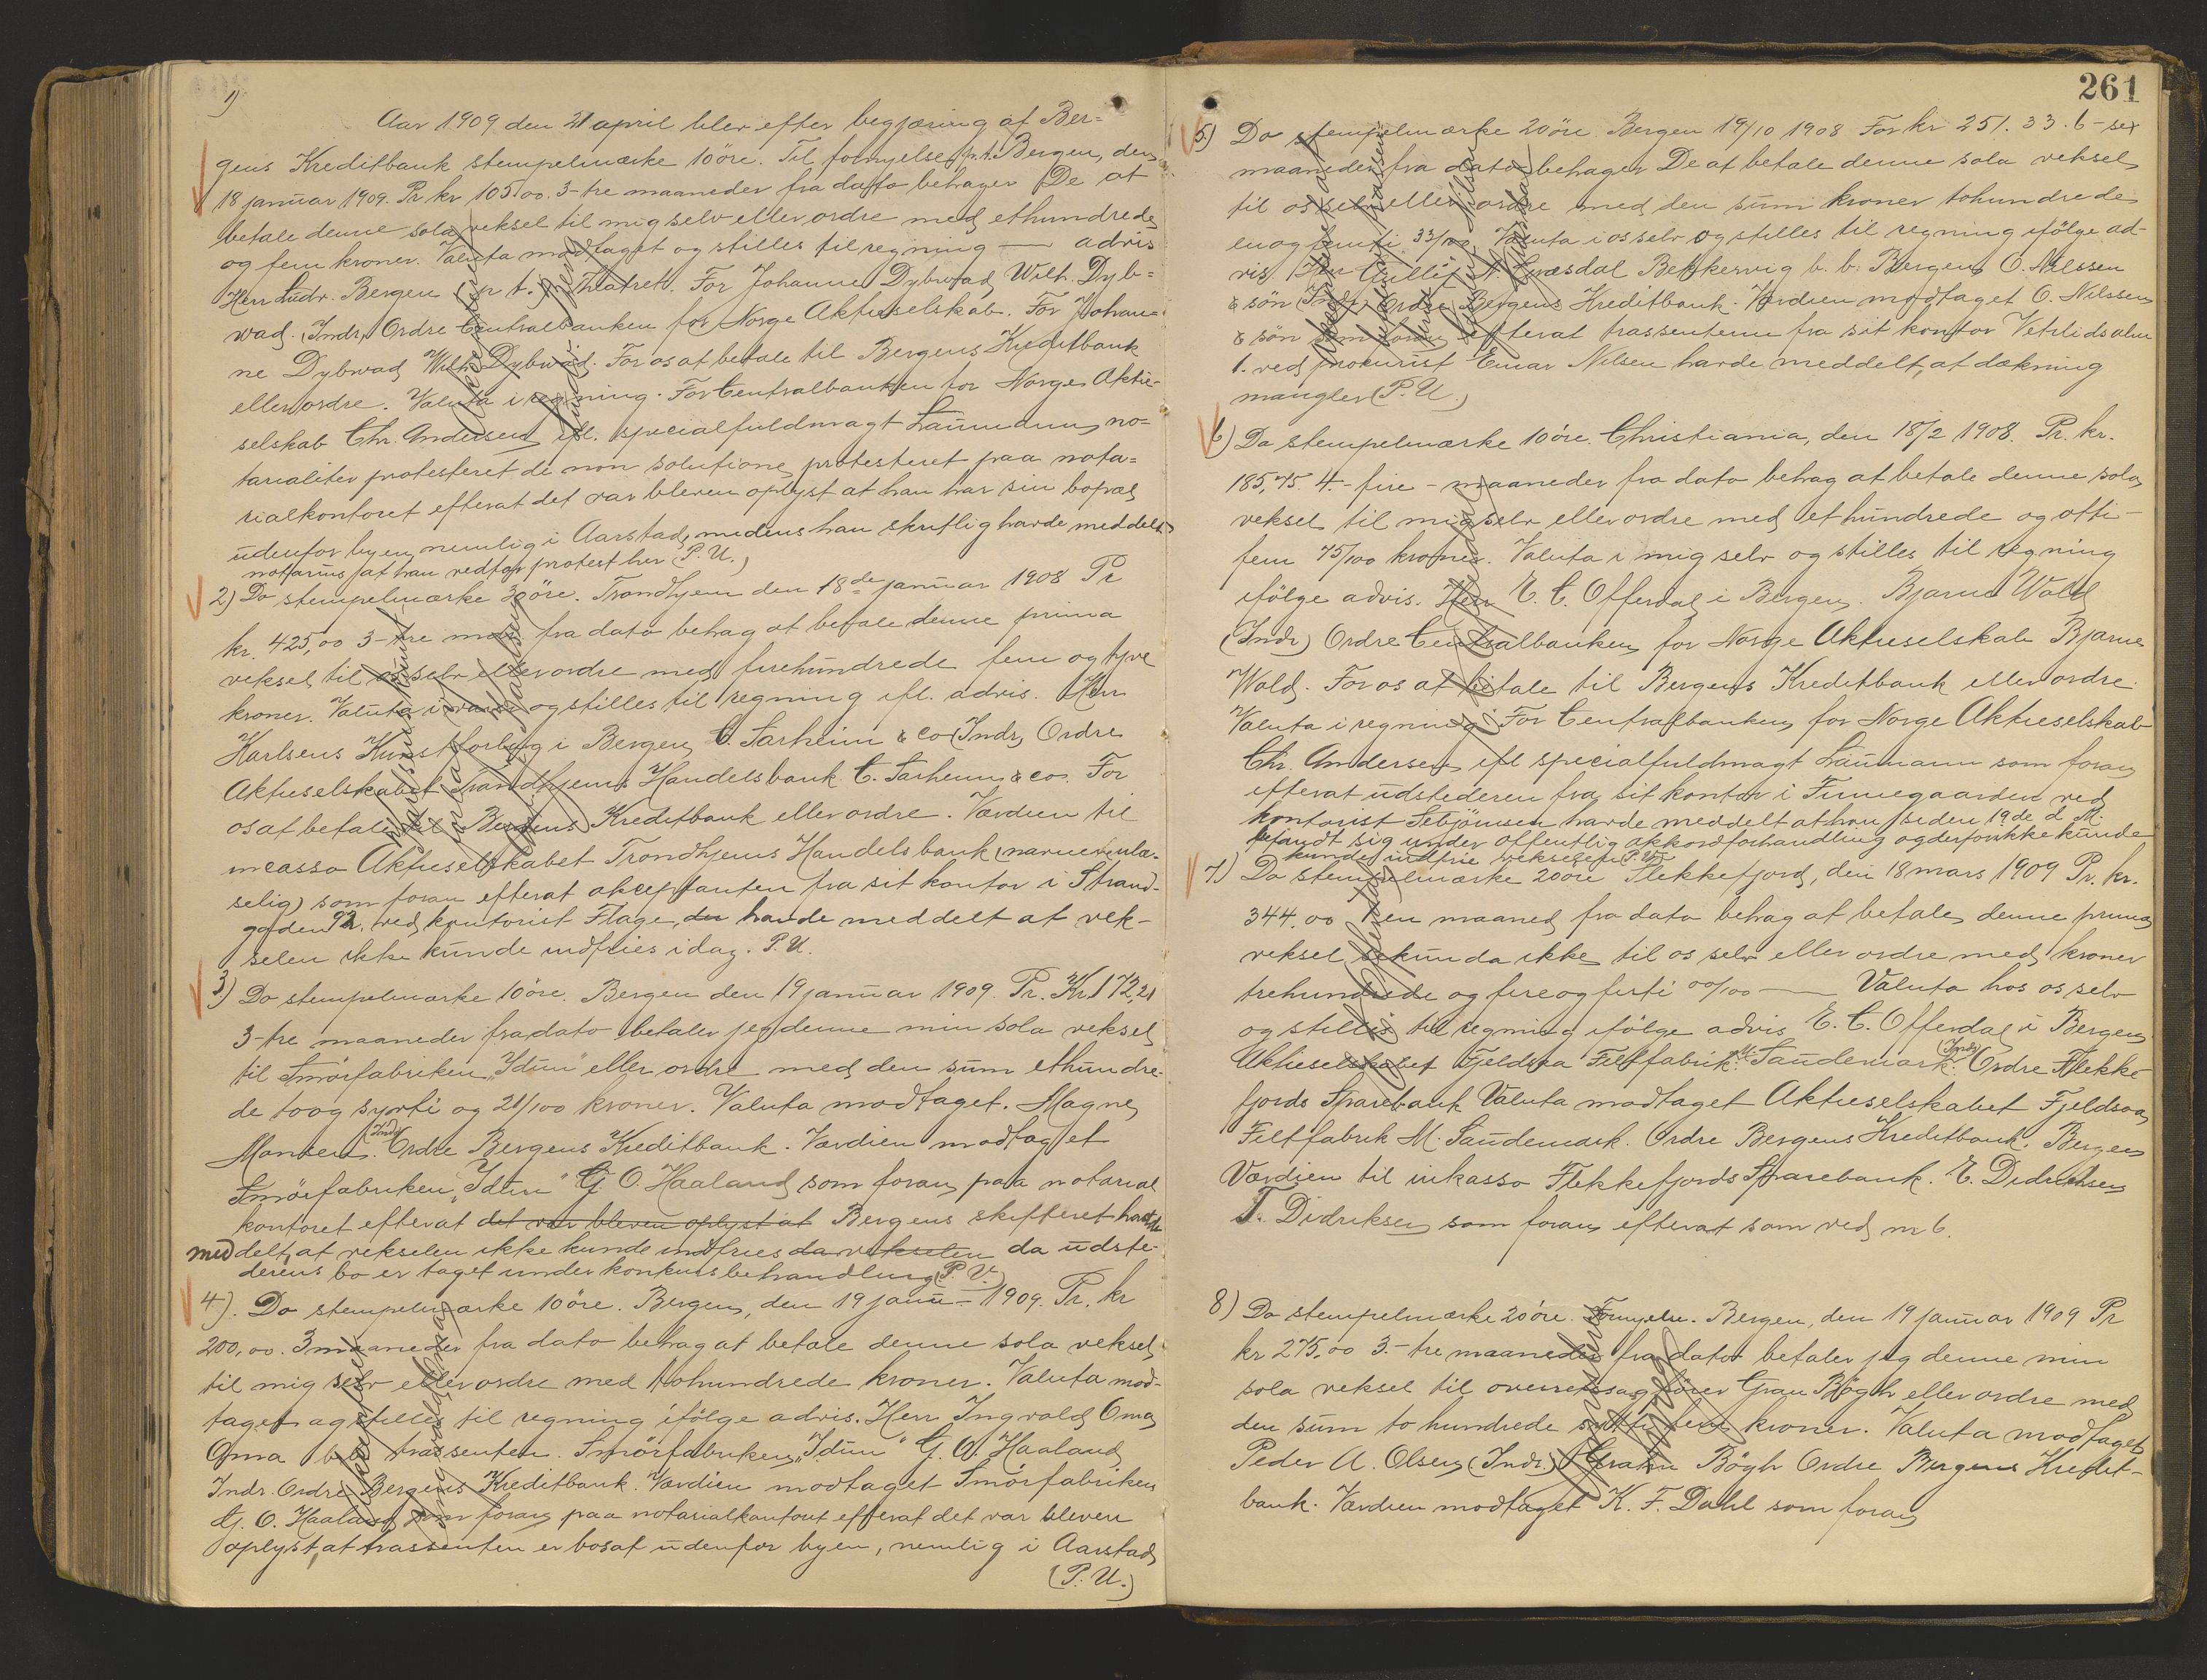 1)
Aar 1909 den 21 april blev efter begjæring af Ber=
gens Kreditbank stempelmærke 10 öre. Til fornyelse p.t. Bergen, den
18 januar 1909. Pr kr 105.00. 3- tre maaneder fra dato behager De at
betale denne sola veksel til mig selv eller ordre med ethundrede
og fem kroner. Valuta modtaget og stilles til regning — advis
Herr Ludv. Bergen p t. Theatret. For Johanne Dybwad Wilh. Dyb=
wad. (Indr) Ordre Centralbanken for Norge Aktieselskab. For Johan=
ne Dybwad Wilh. Dybwad. For os at betale til Bergens Kreditbank
eller ordre. Valuta i regning. For Centralbanken for Norge Aktie-
selskab Chr. Andersen ifl. specialfuldmagt Laumann no=
tarialiter protesteret de non solutione protesteret paa nota=
rialkontoret efterat det var bleven oplyst at han har sin bopæl
udenfor byen nemlig i Aarstad, medens han skriftlig havde meddelt
notarius at han vedtog protest her (P. U.)
2) Do stempelmærke 30 öre. Trondhjem den 18de januar 1908 Pr
kr. 425,00 3- tre mdr fra dato behag at betale denne prima
veksel til os selv eller ordre med firehundrede fem og tyve
kroner. Valuta i varer og stilles til regning ifl. advis. Herr
Karlsens Kunstforlag i Bergen C. Sarheim & Co (Indr) Ordre
Aktieselskabet Trondhjems Handelsbank C. Sarheim & co. For
os at betale til Bergens Kreditbank eller ordre. Værdien til
incasso Aktieselskabet Trondhjems Handelsbank (navne ulæ-
selig) som foran efterat akceptanten fra sit kontor i Strand-
gaden 92, ved kontorist Flage, der havde meddelt at vek-
selen ikke kunde indfries idag. P. U.
3) Do stempelmærke 10 öre. Bergen den 19 januar 1909. Pr. Kr. 172,21
3- tre maaneder fra dato betaler jeg denne min sola veksel
til Smörfabriken "Idun" eller ordre med den sum ethundre-
de toogsytti og 21/100 kroner. Valuta modtaget. Magne
Monsen. (Indr) Ordre Bergens Kreditbank. Værdien modtaget
Smörfabriken "Idun" G. O. Haaland som foran paa notarial
kontoret efterat det var bleven oplyst at Bergens skifteret havde
meddelt, at vekselen ikke kunde indfries da vekselen da udste-
derens bo er taget under konkursbehandling (P. U.)
4). Do stempelmærke 10 öre. Bergen, den 19 janu - 1909. Pr. kr
200,00. 3 maaneder fra dato behag at betale denne sola veksel
til mig selv eller ordre med tohundrede kroner. Valuta mod-
taget og stilles til regning ifölge advis. Herr Ingvald Oma
Oma trassenten. Smörfabriken "Idun" G. O. Haaland
Indr. Ordre Bergens Kreditbank. Værdien modtaget Smörfabriken
G. O. Haaland som foran paa notarialkontoret efterat det var bleven
oplyst, at trassenten er bosat udenfor byen, nemlig i Aarstad
(P. U.)
261
5) Do stempelmærke 20 öre. Bergen 19/10 1908 For kr 251.33. 6- sex
maaneder fra dato behager De at betale denne sola veksel
til os selv eller ordre med den sum kroner tohundrede
en og femti 33/100 Valuta i os selv og stilles til regning ifölge ad-
vis. Bergen O. Nilssen
& sön (Indr) Ordre Bergens Kreditbank. Værdien modtaget O. Nilssen
& sön som foran efterat trassenten fra sit kontor Vetrlidsalm
1. ved prokurist Einar Nilsen havde meddelt, at dækning
mangler (P. U.)
6) Do stempelmærke 10 öre. Christiania, den 18/2 1908. Pr. kr.
185,75. 4.- fire - maaneder fra dato behag at betale denne sola
veksel til mig selv eller ordre med et hundrede og otti-
fem 75/100 kroner. Valuta i mig selv og stilles til regning
ifölge advis. Herr E. C. Offerdal i Bergen. Bjarne Wold
(Indr) Ordre Centralbanken for Norge Aktieselskab Bjarne
Wold. For os at betale til Bergens Kreditbank eller ordre.
Valuta i regning. For Centralbanken for Norge Aktieselskab
Chr. Andersen ifl specialfuldmagt Laumann som foran
efterat udstederen fra sit kontor i Finnegaarden ved
kontorist havde meddelt at han siden 19de d M.
befandt sig under offentlig akkordforhandling og derfor ikke kunde
kunde indfrie vekselen P. U.
7.) Do stempelmærke 20 öre Flekkefjord, den 18 mars 1909 Pr. kr.
344.00 1 en maaned fra dato behag at betale denne prima
veksel sekunda ikke til os selv eller ordre med kroner
trehundrede og fireogfirti 00/100 — Valuta hos os selv
og stilles til regning ifölge advis E. C. Offerdal i Bergen
Aktieselskabet Fjeldsaa Filtfabrik M. Saudemark. (Indr) Ordre Flekke
fjords Sparebank Valuta modtaget Aktieselskabet Fjeldsaa
Filtfabrik M. Saudemark. Ordre Bergens Kreditbank. Bergen
Værdien til inkasso Flekkefjords Sparebank. E. Didriksen
T. Didriksen som foran efterat som ved nr 6.
8) Do stempelmærke 20 öre. Fornyelse. Bergen, den 19 januar 1909 Pr
kr 275.00 3.- tre maaneder fra dato betaler jeg denne min
sola veksel til overretssagförer Gran Bögh eller ordre med
den sum to hundrede sytti fem kroner. Valuta modtaget
Peder A. Olsen (Indr) Gran Bögh Ordre Bergens Kredit-
bank. Værdien modtaget K. F. Dahl som foran